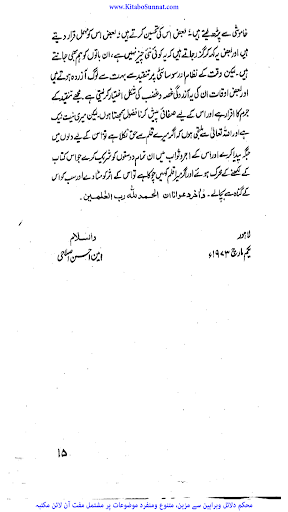 www.KitaboSunnat.com
خاموشی سے پڑھ لیتے ہیں۔ بعض اس کی تحسین کرتے ہیں، بعض اس کو مہمل قرار دیتے
ہیں اور بعض یہ کہہ کر گزر جاتے ہیں کہ یہ کوئی نئی چیز نہیں ہے، ان باتوں کو ہم بھی جانتے
ہیں۔ لیکن وقت کے نظام اور سوسائٹی پر تنقید سے بہت سے لوگ آزردہ ہوتے ہیں
اور بعض اوقات ان کی یہ آزردگی غصہ و غضب کی شکل اختیار کر لیتی ہے۔ مجھے تنقید کے
جرم کا اقرار ہے اور اس کے لیے صفائی پیش کرنا فضول سمجھتا ہوں۔ لیکن میری نیت نیک
ہے اور اللہ تعالیٰ سے ملتجی ہوں کہ اگر میرے قلم سے حق نکلا ہے تو اس کے لیے دلوں میں
جگہ پیدا کرے اور اس کے اجر و ثواب میں ان تمام دوستوں کو شریک کرے جو اس کتاب
کے لکھنے کے محرک ہوئے اور اگر میرا قلم کہیں چوکا ہے تو اس کے اثر کو مٹا دے اور سب کو اس
کے گناہ سے بچا لے۔ وآخر دعوانا ان الحمد للہ رب العلمین۔
لاہور والسلام
یکم مارچ ۱۹۷۳ء امین احسن اصلاحی
۱۵
محکم دلائل وبراہین سے مزین، متنوع ومنفرد موضوعات پر مشتمل مفت آن لائن مکتبہ